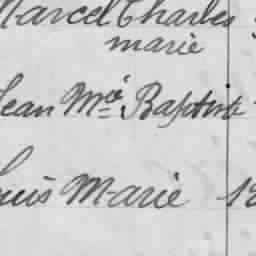 Marcel Charles
marie
Jean Mie Baptiste
Louis Marie 18